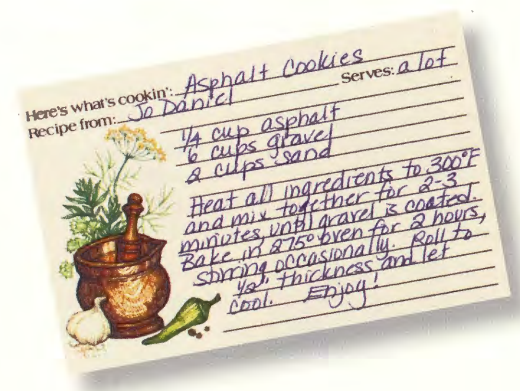 Here's what's cookin': Asphalt Cookies
Recipe from: Jo Daniel Serves: a lot
1/4 cup asphalt
6 cups gravel
2 cups sand
Heat all ingredients to 300°F
and mix together for 2-3
minutes until gravel is coated.
Bake in 275° oven for 2 hours,
stirring occasionally. Roll to
1/2" thickness and let
cool. Enjoy!